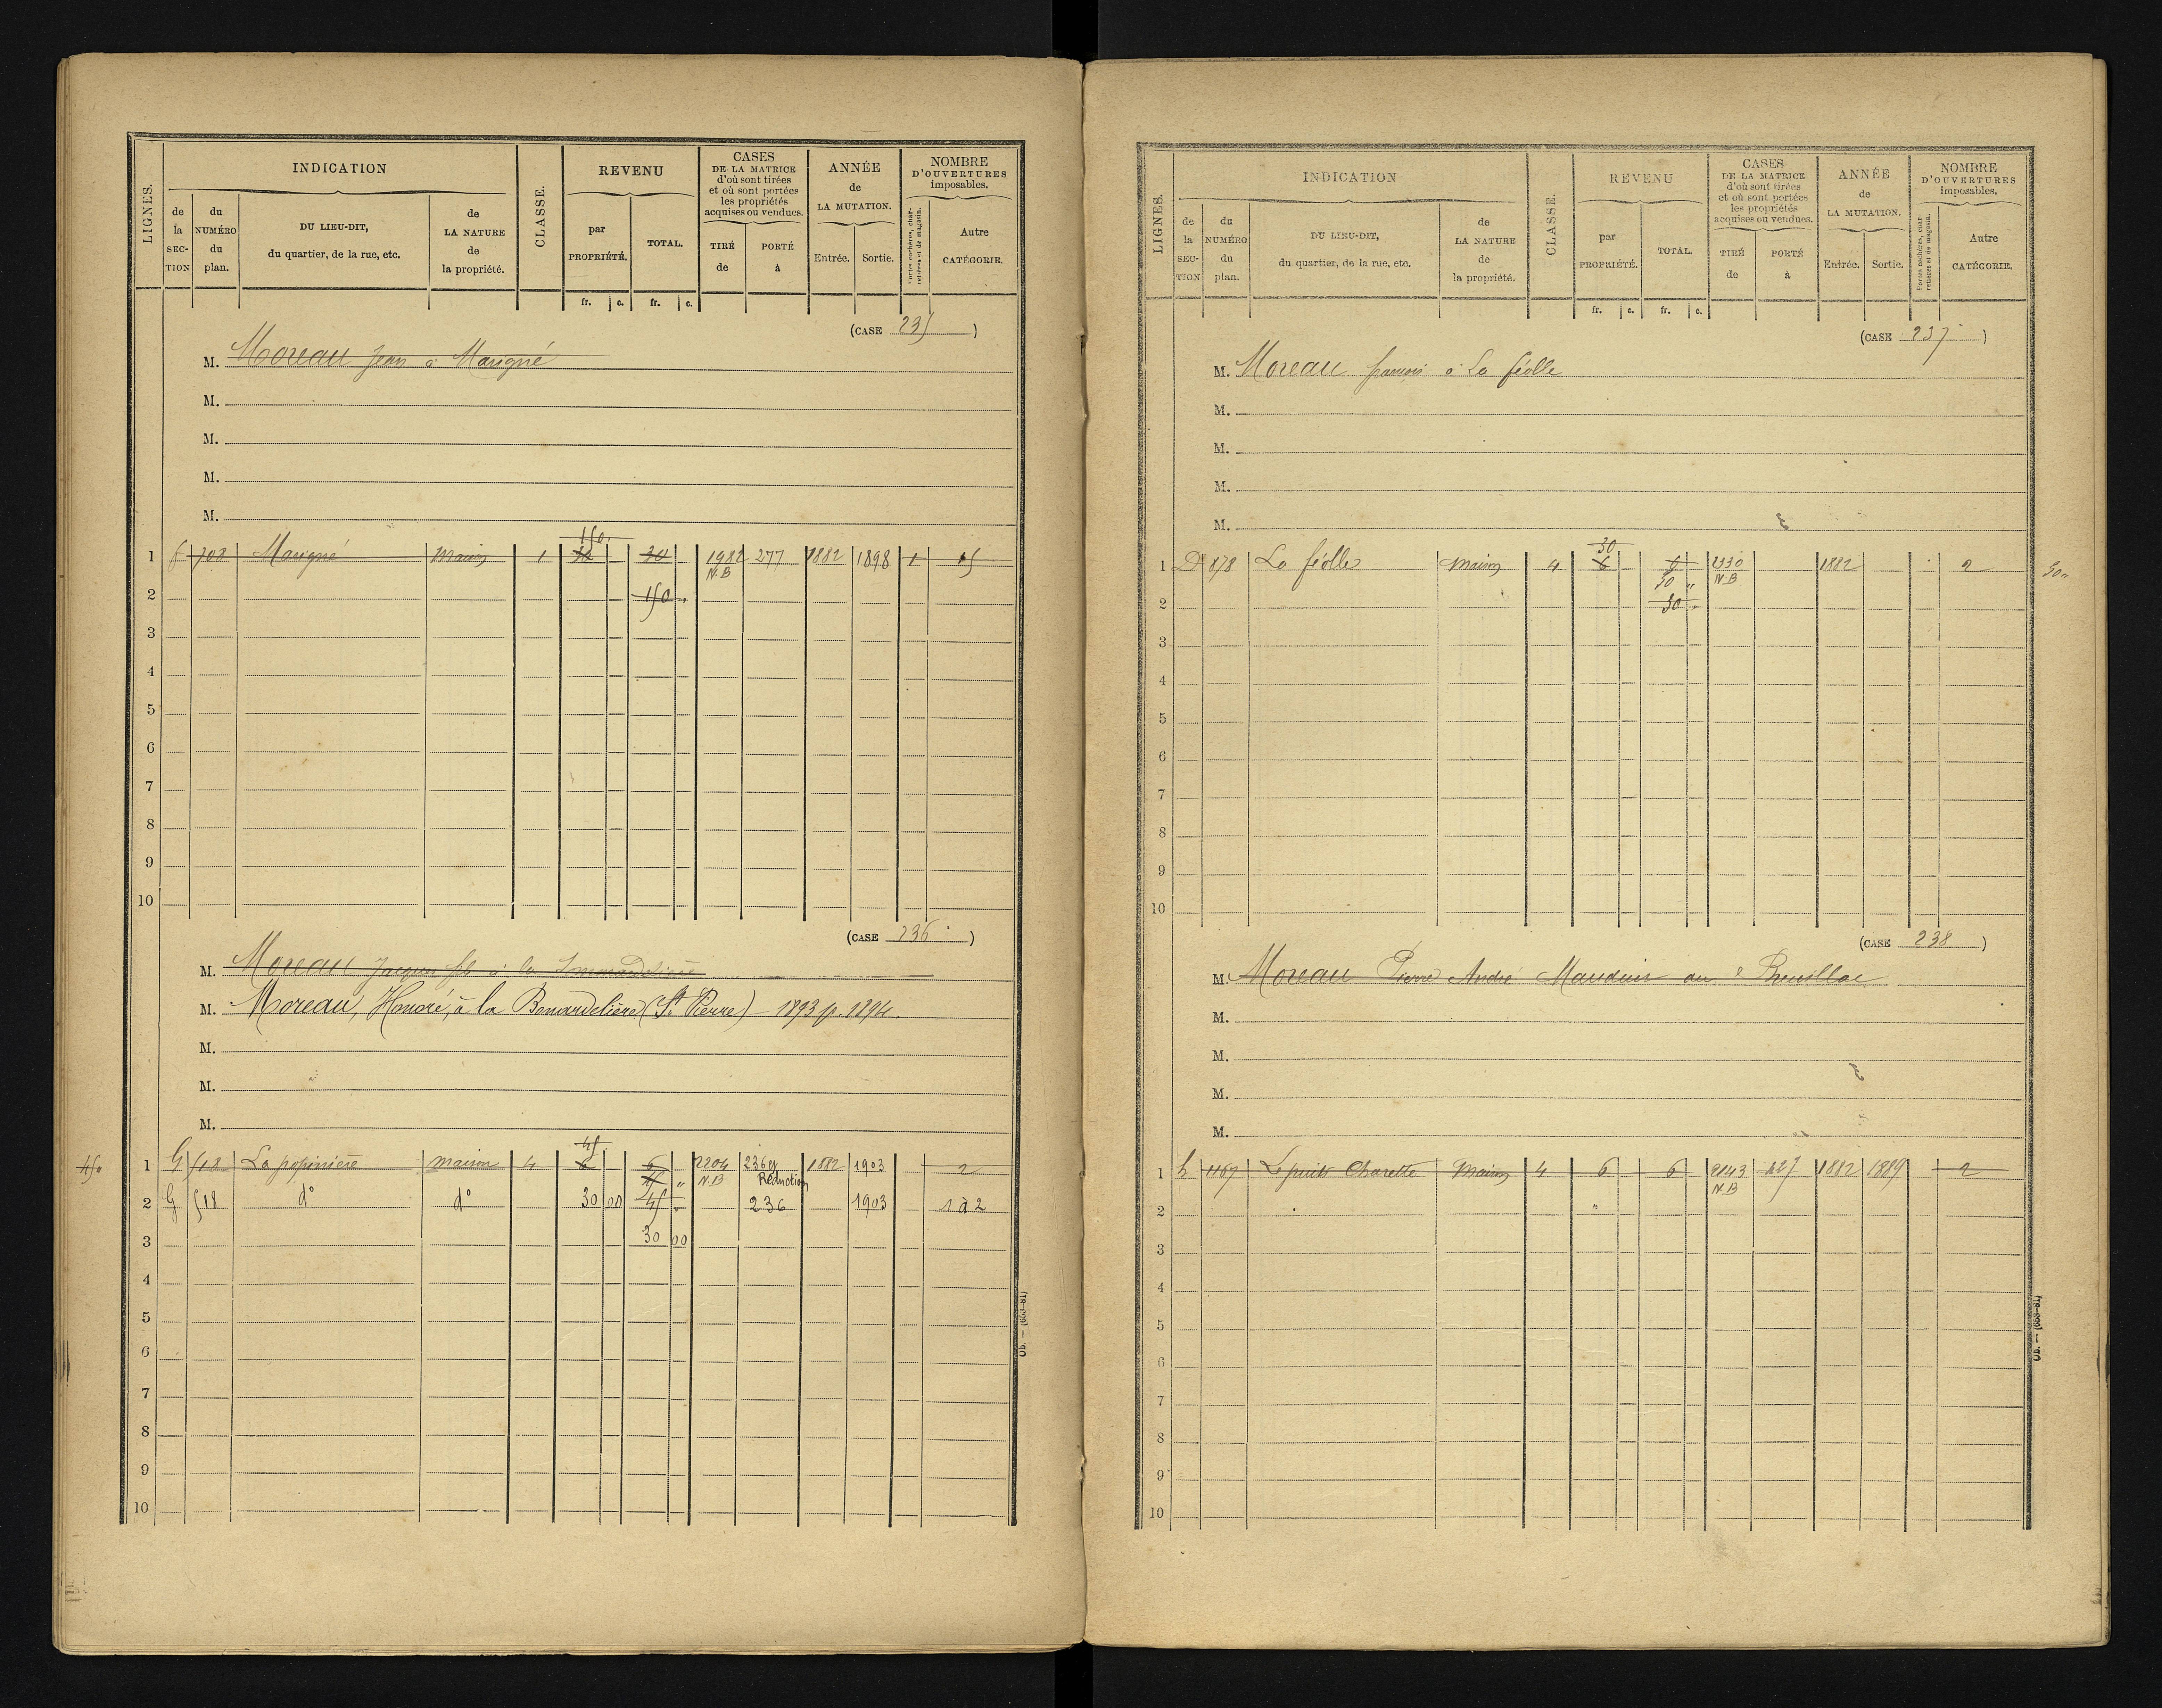 LIGNES. INDICATION CLASSE. REVENU CASES DE LA MATRICE d'où sont tirées et où sont portées les propriétés acquises ou vendues. ANNÉE de LA MUTATION. NOMBRE D'OUVERTURES imposables.
de la SECTION du NUMÉRO du plan. DU LIEU-DIT, du quartier, de la rue, etc. de LA NATURE de la propriété. par PROPRIÉTÉ. TOTAL. TIRÉ de PORTÉ à Entrée. Sortie. Portes cochères, charretières et de magasin. Autre CATÉGORIE.
fr. c. fr. c.
(CASE 235 )
M. Moreau Jean à Marigné
M.
M.
M.
M.
150
1 f 708 Marigné Maison 1 30 30 1982 277 1882 1898 1 15
N.B
2 150
3
4
5
6
7
8
9
10
(CASE 236 )
M. Moreau Jacques fils à la
M. Moreau, Honoré, à la Benardelière (St Pierre) – 1893 p. 1894.
M.
M.
M.
45
45 "
1 G 518 La popinière maison 4 6 6 2204 236 1882 1903 2
45 " N.B Réduction
2 G 518 d° d° 30 00 45 236 1903 1 à 2
3 30 00
4
5
6
7
8
9
10
Ob. — (693-81)
LIGNES. INDICATION CLASSE. REVENU CASES DE LA MATRICE d'où sont tirées et où sont portées les propriétés acquises ou vendues. ANNÉE de LA MUTATION. NOMBRE D'OUVERTURES imposables.
de la SECTION du NUMÉRO du plan. DU LIEU-DIT, du quartier, de la rue, etc. de LA NATURE de la propriété. par PROPRIÉTÉ. TOTAL. TIRÉ de PORTÉ à Entrée. Sortie. Portes cochères, charretières et de magasin. Autre CATÉGORIE.
fr. c. fr. c.
(CASE 237 )
M. Moreau francois à La féolle
M.
M.
M.
M.
30
1 D 878 La féolle Maison 4 6 6 2330 1882 2 30 "
30 " N.B
2 30
3
4
5
6
7
8
9
10
(CASE 238 )
M. Moreau Pierre André Mauduis au
M.
M.
M.
M.
1 h 1167 Le puits Charette Maison 4 6 6 2143 427 1882 1889 2
N.B
2
3
4
5
6
7
8
9
10
Ob. — (693-81)